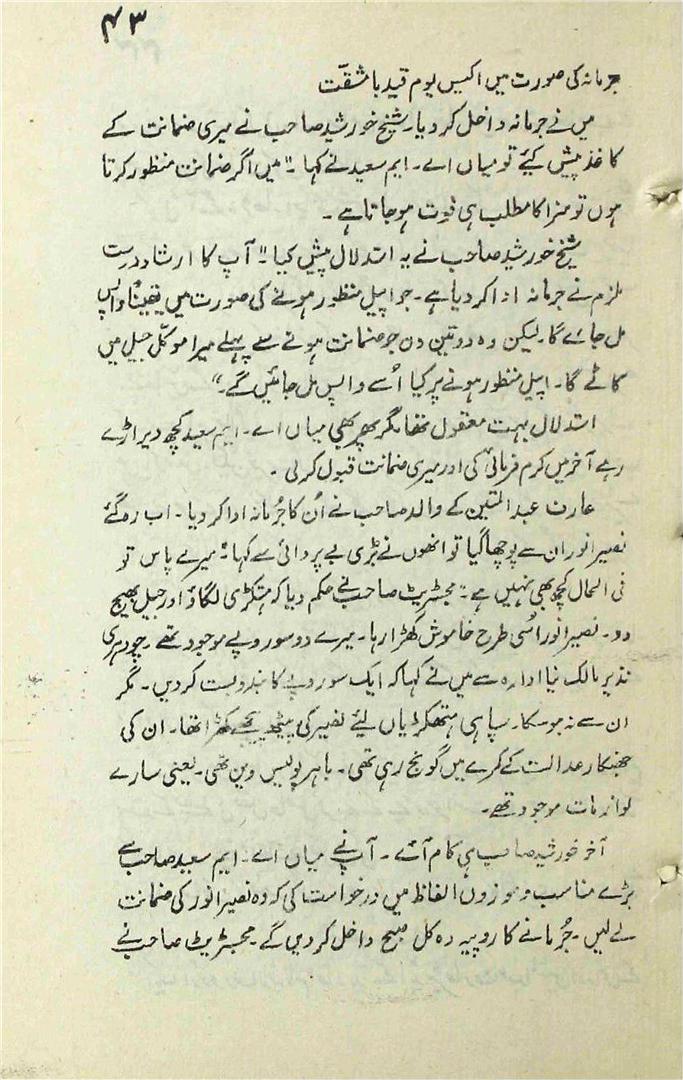 ۴۳
جرمانہ کی صورت میں اکیس یوم قید با مشقت
میں نے جرمانہ داخل کر دیا۔ شیخ خورشید صاحب نے میری ضمانت کے
کاغذ پیش کیے تو میاں اے۔ ایم سعید نے کہا۔ "میں اگر ضمانت منظور کرتا
ہوں تو سزا کا مطلب ہی فوت ہو جاتا ہے۔
شیخ خورشید صاحب نے یہ استدلال پیش کیا۔ "آپ کا ارشاد درست
ملزم نے جرمانہ ادا کر دیا ہے۔ جو اپیل منظور ہونے کی صورت میں یقیناً واپس
مل جائے گا۔ لیکن وہ دو تین دن جو ضمانت ہونے سے پہلے میرا موکل جیل میں
کاٹے گا۔ اپیل منظور ہونے پر کیا اُسے واپس مل جائیں گے۔"
استدلال بہت معقول تھا مگر پھر بھی میاں اے۔ ایم سعید کچھ دیر اڑے
رہے آخر میں کرم فرمائی کی اور میری ضمانت قبول کر لی۔
عارف عبدالمتین کے والد صاحب نے اُن کا جُرمانہ ادا کر دیا۔ اب رہ گئے
نصیر انور ان سے پوچھا گیا تو انھوں نے بڑی بے پروائی سے کہا "میرے پاس تو
فی الحال کچھ بھی نہیں ہے۔" مجسٹریٹ صاحب نے حکم دیا کہ ہتکڑی لگاؤ اور جیل بھیج
دو۔ نصیر انور اُسی طرح خاموش کھڑا رہا۔ میرے دو سو روپے موجود تھے۔ چودہری
نذیر مالک نیا ادارہ سے میں نے کہا کہ ایک سو روپے کا بندوبست کر دیں۔ مگر
ان سے نہ ہو سکا۔ سپاہی ہتھکڑیاں لیے نصیر کی پیٹھ پیچھے کھڑا تھا۔ ان کی
جھنکار عدالت کے کمرے میں گونج رہی تھی۔ باہر پولیس وین تھی۔ یعنی سارے
لوازمات موجود تھے۔
آخر خورشید صاحب ہی کام آئے۔ آپ نے میاں اے۔ ایم سعید صاحب سے
بڑے مناسب و موزوں الفاظ میں درخواست کی کہ وہ نصیر انور کی ضمانت
لے لیں۔ جُرمانے کا روپیہ وہ کل صبح داخل کر دیں گے۔ مجسٹریٹ صاحب نے